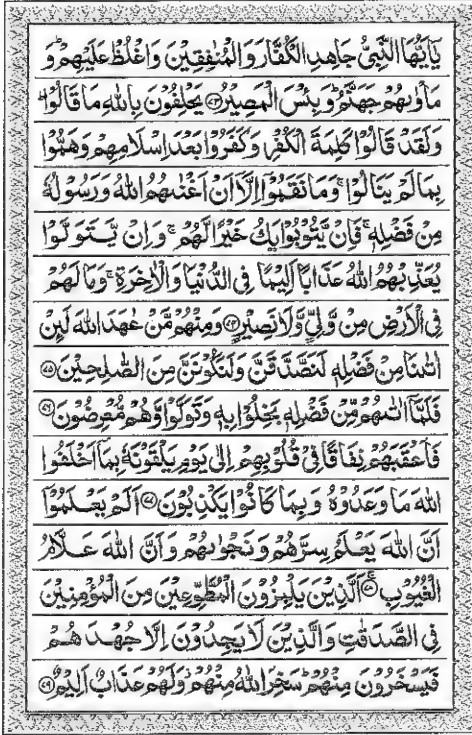 يٰٓاَيُّهَا النَّبِيُّ جَاهِدِ الْكُفَّارَ وَالْمُنٰفِقِيْنَ وَاغْلُظْ عَلَيْهِمْ ؕ وَ
مَاْوٰىهُمْ جَهَنَّمُ ؕ وَبِئْسَ الْمَصِيْرُ ﴿۷۳﴾ يَحْلِفُوْنَ بِاللّٰهِ مَا قَالُوْا ؕ
وَلَقَدْ قَالُوْا كَلِمَةَ الْكُفْرِ وَكَفَرُوْا بَعْدَ اِسْلَامِهِمْ وَهَمُّوْا
بِمَا لَمْ يَنَالُوْا ۚ وَمَا نَقَمُوْٓا اِلَّآ اَنْ اَغْنٰىهُمُ اللّٰهُ وَرَسُوْلُهٗ
مِنْ فَضْلِهٖ ۚ فَاِنْ يَّتُوْبُوْا يَكُ خَيْرًا لَّهُمْ ۚ وَاِنْ يَّتَوَلَّوْا
يُعَذِّبْهُمُ اللّٰهُ عَذَابًا اَلِيْمًا فِى الدُّنْيَا وَالْاٰخِرَةِ ۚ وَمَا لَهُمْ
فِى الْاَرْضِ مِنْ وَّلِيٍّ وَّلَا نَصِيْرٍ ﴿۷۴﴾ وَمِنْهُمْ مَّنْ عٰهَدَ اللّٰهَ لَئِنْ
اٰتٰىنَا مِنْ فَضْلِهٖ لَنَصَّدَّقَنَّ وَلَنَكُوْنَنَّ مِنَ الصّٰلِحِيْنَ ﴿۷۵﴾
فَلَمَّآ اٰتٰىهُمْ مِّنْ فَضْلِهٖ بَخِلُوْا بِهٖ وَتَوَلَّوْا وَّهُمْ مُّعْرِضُوْنَ ﴿۷۶﴾
فَاَعْقَبَهُمْ نِفَاقًا فِيْ قُلُوْبِهِمْ اِلٰى يَوْمِ يَلْقَوْنَهٗ بِمَآ اَخْلَفُوا
اللّٰهَ مَا وَعَدُوْهُ وَبِمَا كَانُوْا يَكْذِبُوْنَ ﴿۷۷﴾ اَلَمْ يَعْلَمُوْٓا
اَنَّ اللّٰهَ يَعْلَمُ سِرَّهُمْ وَنَجْوٰىهُمْ وَاَنَّ اللّٰهَ عَلَّامُ
الْغُيُوْبِ ﴿۷۸﴾ اَلَّذِيْنَ يَلْمِزُوْنَ الْمُطَّوِّعِيْنَ مِنَ الْمُؤْمِنِيْنَ
فِى الصَّدَقٰتِ وَالَّذِيْنَ لَا يَجِدُوْنَ اِلَّا جُهْدَهُمْ
فَيَسْخَرُوْنَ مِنْهُمْ ؕ سَخِرَ اللّٰهُ مِنْهُمْ ۫ وَلَهُمْ عَذَابٌ اَلِيْمٌ ﴿۷۹﴾